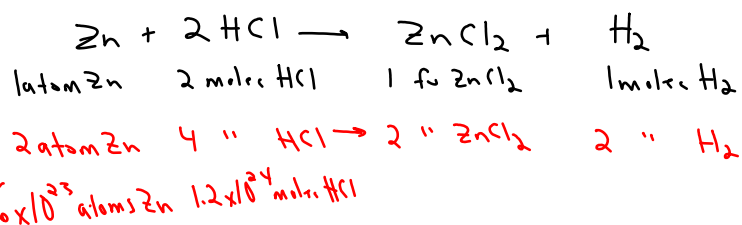 Zn + 2 HCl → ZnCl₂ + H₂
1 atom Zn 2 molec HCl 1 fu ZnCl₂ 1 molec H₂
2 atom Zn 4 " HCl → 2 " ZnCl₂ 2 " H₂
x10²³ atoms Zn 1.2x10²⁴ molec HCl